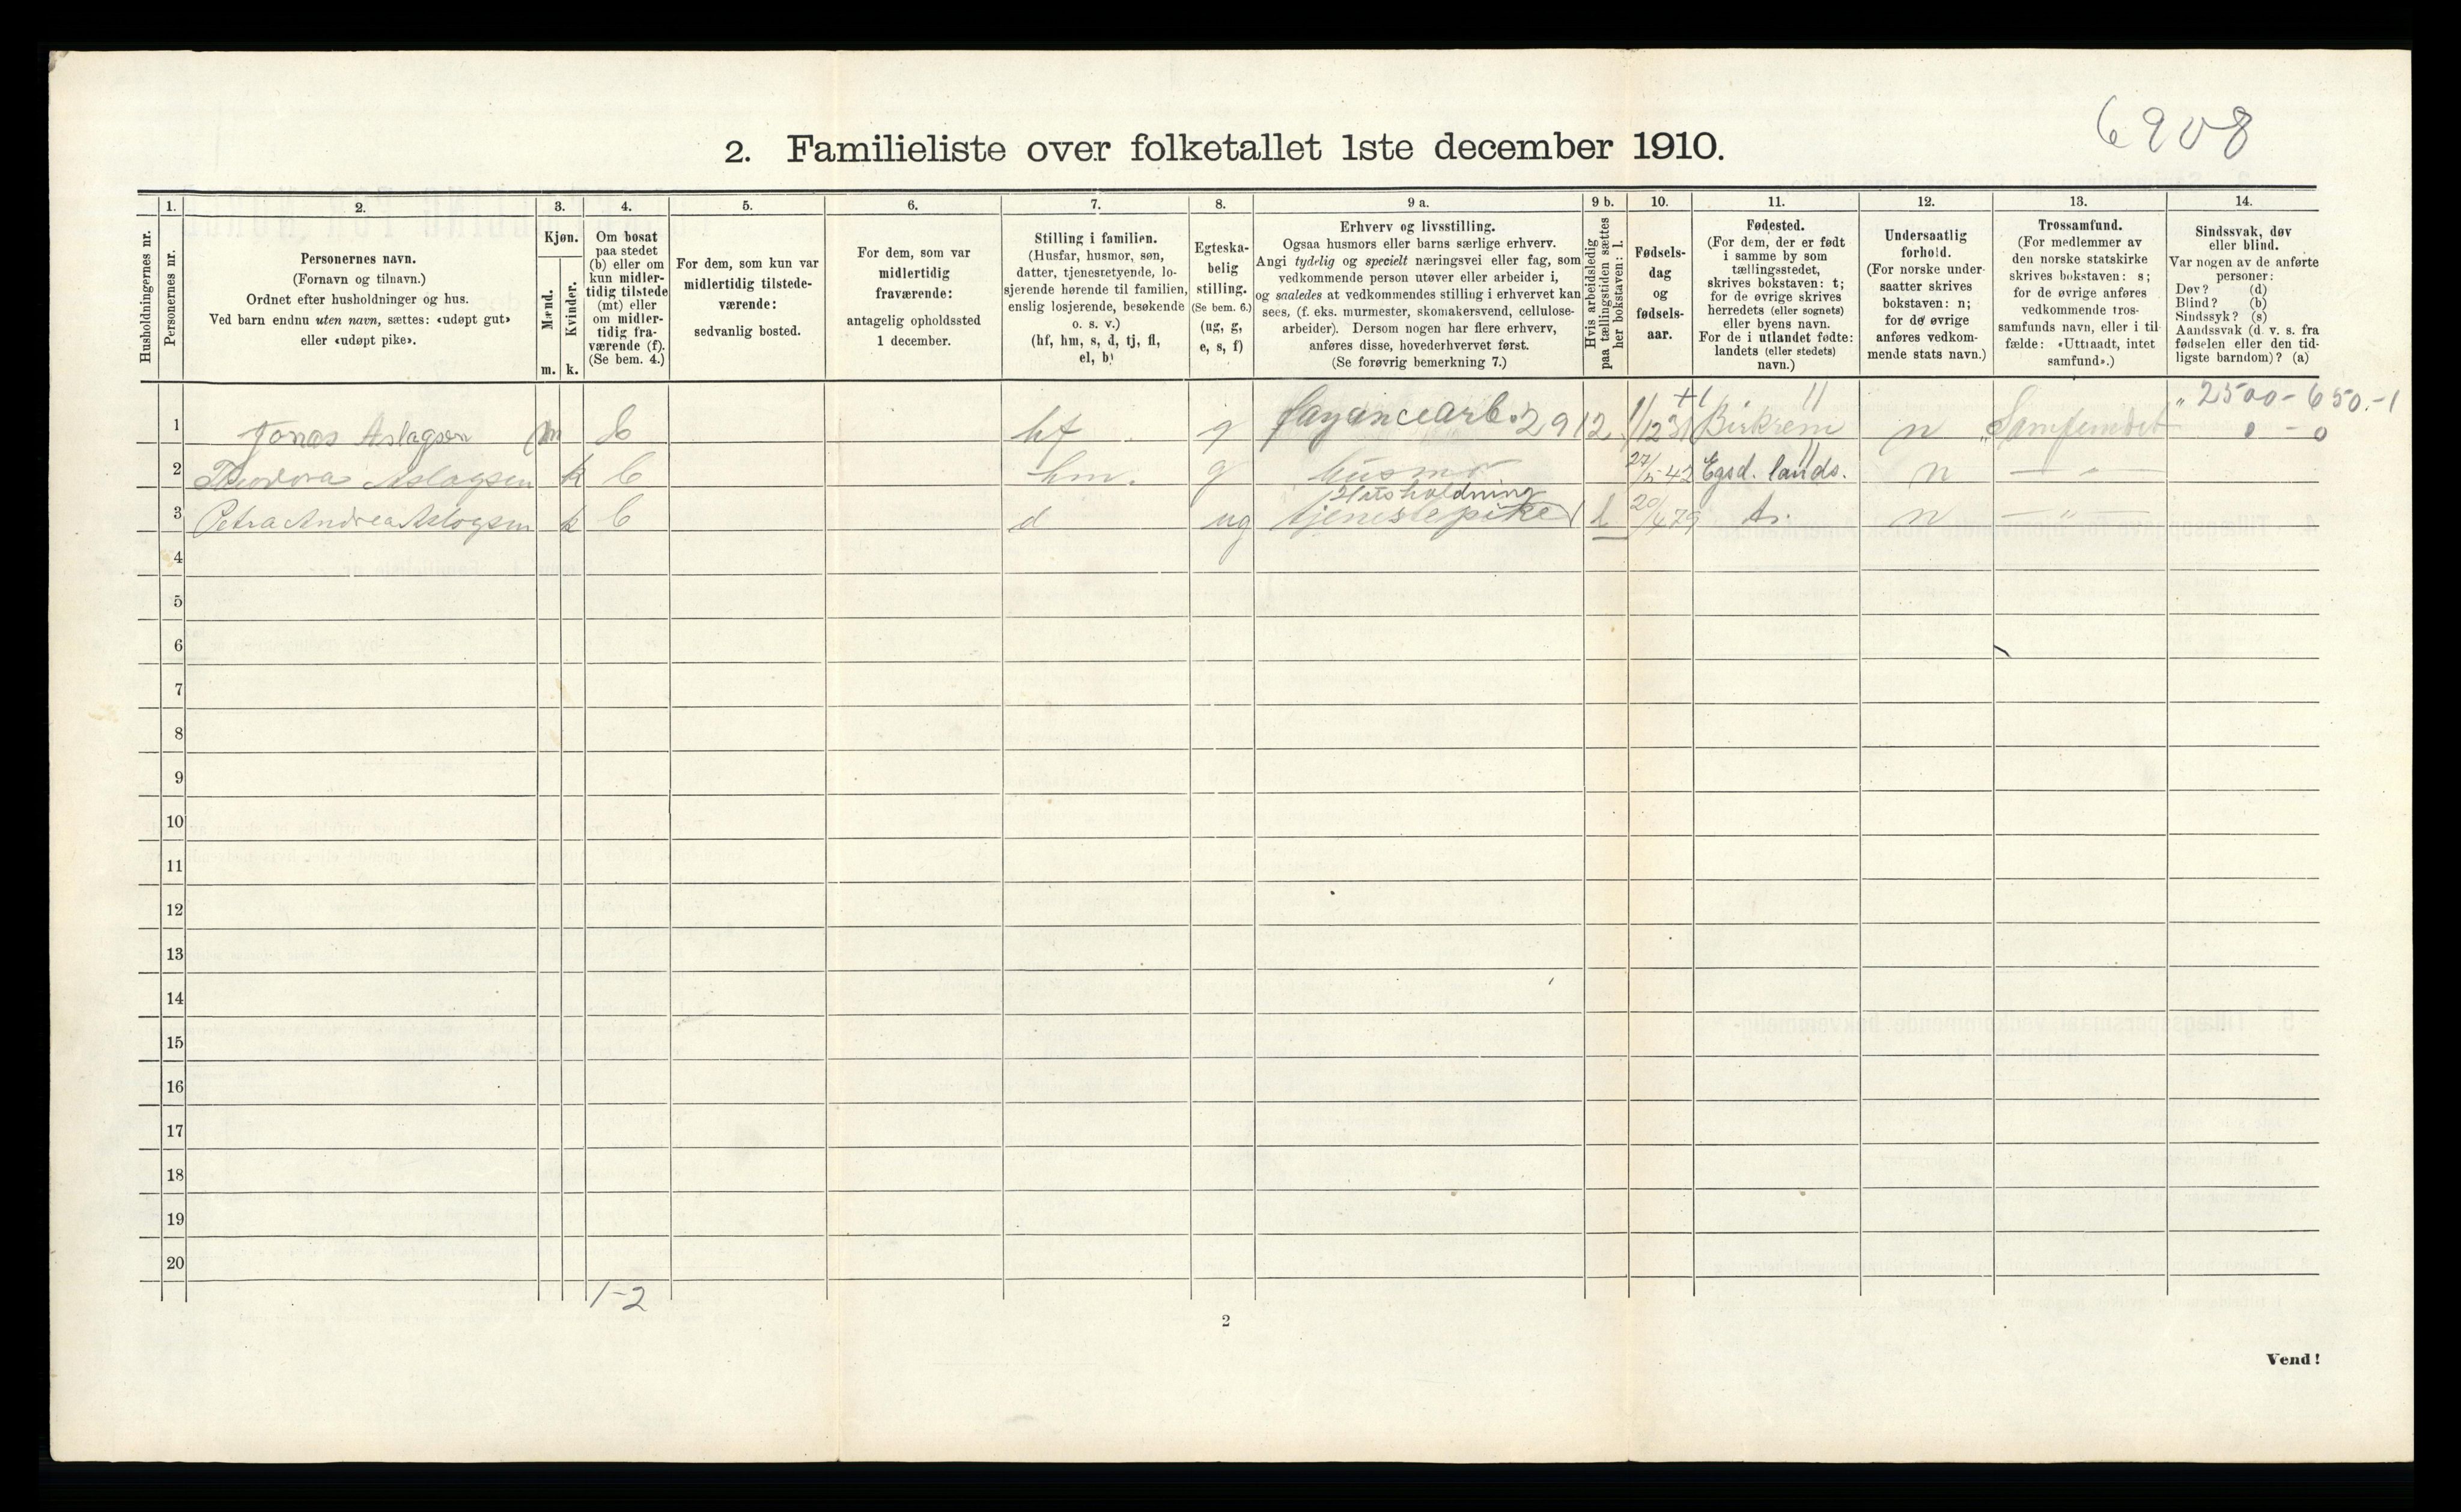 6908
2. Familieliste over folketallet 1ste december 1910.
Husholdningernes nr.
1.
Personernes nr.
2.
Personernes navn.
(Fornavn og tilnavn.)
Ordnet efter husholdninger og hus.
Ved barn endnu uten navn, sættes: «udøpt gut»
eller «udøpt pike».
3.
Kjøn.
Mænd.
Kvinder.
m. k.
4.
Om bosat
paa stedet
(b) eller om
kun midler-
tidig tilstede
(mt) eller
om midler-
tidig fra-
værende (f).
(Se bem. 4.)
5.
For dem, som kun var
midlertidig tilstede-
værende:
sedvanlig bosted.
6.
For dem, som var
midlertidig
fraværende:
antagelig opholdssted
1 december.
7.
Stilling i familien.
(Husfar, husmor, søn,
datter, tjenestetyende, lo-
sjerende hørende til familien,
enslig losjerende, besøkende
o. s. v.)
(hf, hm, s, d, tj, fl,
el, b)
8.
Egteska-
belig
stilling.
(Se bem. 6.)
(ug, g,
e, s, f)
9 a.
Erhverv og livsstilling.
Ogsaa husmors eller barns særlige erhverv.
Angi tydelig og specielt næringsvei eller fag, som
vedkommende person utøver eller arbeider i,
og saaledes at vedkommendes stilling i erhvervet kan
sees, (f. eks. murmester, skomakersvend, cellulose-
arbeider). Dersom nogen har flere erhverv,
anføres disse, hovederhvervet først.
(Se forøvrig bemerkning 7.)
9 b.
Hvis arbeidsledig
paa tællingstiden sættes
her bokstaven: l.
10.
Fødsels-
dag
og
fødsels-
aar.
11.
Fødested.
(For dem, der er født
i samme by som
tællingsstedet,
skrives bokstaven: t;
for de øvrige skrives
herredets (eller sognets)
eller byens navn.
For de i utlandet fødte:
landets (eller stedets)
navn.)
12.
Undersaatlig
forhold.
(For norske under-
saatter skrives
bokstaven: n;
for de øvrige
anføres vedkom-
mende stats navn.)
13.
Trossamfund.
(For medlemmer av
den norske statskirke
skrives bokstaven: s;
for de øvrige anføres
vedkommende tros-
samfunds navn, eller i til-
fælde: «Uttraadt, intet
samfund».)
14.
Sindssvak, døv
eller blind.
Var nogen av de anførte
personer:
Døv? (d)
Blind? (b)
Sindssyk? (s)
Aandssvak (d. v. s. fra
fødselen eller den tid-
ligste barndom)? (a)
1 Jonas Aslagsen m b hf g fayancearb. 2912 1/12 31 Birkrem n Samfundet 2500-650.-1
0 - 0
2 Theodora Aslagsen k b hm. g husmor 27/5 42 Egsd. lands. n — " —
Husholdning
3 Petra Andrea Aslogsen k b d ug tjenestepike l 20/4 79 t. n — " —
4
5
6
7
8
9
10
11
12
13
14
15
16
17
18
19
20
1-2
2
Vend!